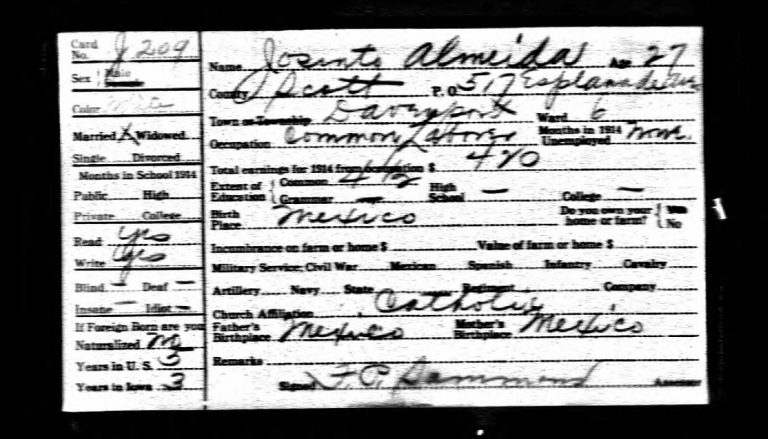 Card No. J 209
Sex Male Female
Color White
Married X Widowed
Single Divorced
Months in School 1914
Public High
Private College
Read Yes
Write Yes
Blind — Deaf —
Insane — Idiot —
If Foreign Born are you
Naturalized No
Years in U. S. 5
Years in Iowa 3
Name Josinto Almeida Age 27
County Scott P. O. 517 Esplanade Av
Town or Township Davenport Ward 6
Occupation Common Laborer Months in 1914 Unemployed
Total earnings for 1914 from occupation $ 420
Extent of Education Common Grammar — High School — College —
Birth Place Mexico Do you own your home or farm? Yes No
Incumbrance on farm or home $ Value of farm or home $
Military Service: Civil War Mexican Spanish Infantry Cavalry
Artillery Navy State Regiment Company
Church Affiliation Catholic
Father's Birthplace Mexico Mother's Birthplace Mexico
Remarks
Signed F. P. Hammond Assessor